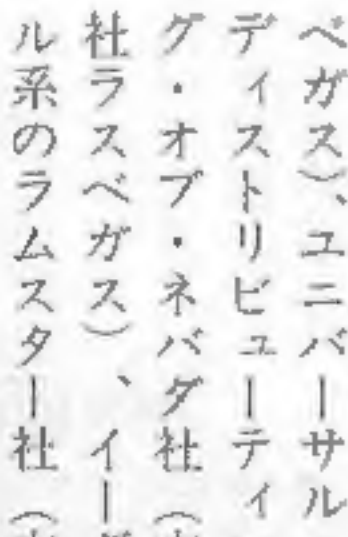 ベガス）、ユニバーサル
ディストリビューティ
グ・オブ・ネバダ社（
社ラスベガス）、イー
ル系のラムスター社（